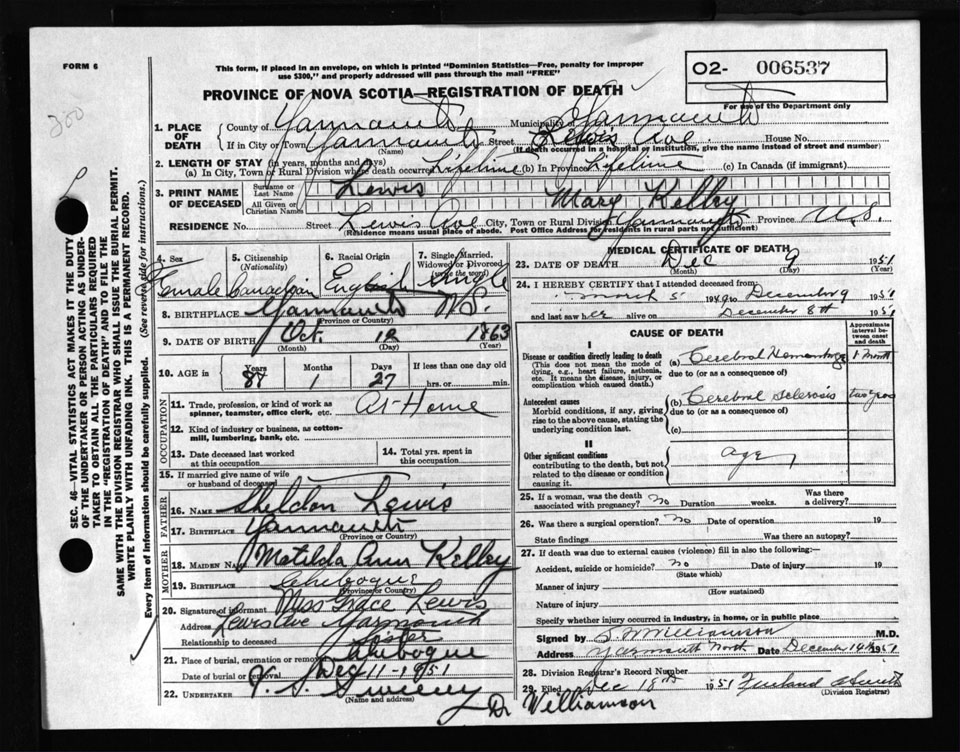 FORM 6
This form, if placed in an envelope, on which is printed "Dominion Statistics—Free, penalty for improper
use $300," and properly addressed will pass through the mail "FREE"
O2- 006537
For use of the Department only
PROVINCE OF NOVA SCOTIA—REGISTRATION OF DEATH
200
1. PLACE OF DEATH
County of Yarmouth Municipality of Yarmouth
If in City or Town Yarmouth (Name) Street Lewis Ave House No.
(If death occurred in a hospital or institution, give the name instead of street and number)
2. LENGTH OF STAY (in years, months and days)
(a) In City, Town or Rural Division where death occurred Lifetime (b) In Province Lifetime (c) In Canada (if immigrant)
3. PRINT NAME OF DECEASED
Surname or Last Name Lewis
All Given or Christian Names Mary Kelley
RESIDENCE No. Street Lewis Ave City, Town or Rural Division Yarmouth Province N.S.
(Residence means usual place of abode. Post Office Address for residents in rural parts not sufficient)
4. Sex Female
5. Citizenship (Nationality) Canadian
6. Racial Origin English
7. Single, Married, Widowed or Divorced (write the word) Single
8. BIRTHPLACE Yarmouth N.S.
(Province or Country)
9. DATE OF BIRTH Oct. 12 1863
(Month) (Day) (Year)
10. AGE in Years 88 Months 1 Days 27 If less than one day old
hrs. or min.
OCCUPATION
11. Trade, profession, or kind of work as spinner, teamster, office clerk, etc. At Home
12. Kind of industry or business, as cotton-mill, lumbering, bank, etc.
13. Date deceased last worked at this occupation
14. Total yrs. spent in this occupation
15. If married give name of wife or husband of deceased
FATHER
16. Name Sheldon Lewis
17. Birthplace Yarmouth
(Province or Country)
MOTHER
18. Maiden Name Matilda Ann Kelley
19. Birthplace Chebogue
(Province or Country)
20. Signature of informant Miss Grace Lewis
Address Lewis Ave Yarmouth
Relationship to deceased Sister
21. Place of burial, cremation or removal Chebogue
Date of burial or removal Dec 11-1951
22. UNDERTAKER V. S. Sweeny
(Name and address)
Dr Williamson
MEDICAL CERTIFICATE OF DEATH
23. DATE OF DEATH Dec 9 1951
(Month) (Day) (Year)
24. I HEREBY CERTIFY that I attended deceased from:
March 5 1949 to December 9 1951
and last saw her alive on December 8th 1951
CAUSE OF DEATH
Approximate interval between onset and death
I
Disease or condition directly leading to death
(This does not mean the mode of dying, e.g., heart failure, asthenia, etc. It means the disease, injury, or complication which caused death.)
(a) Cerebral Hemorrhage 1 month
due to (or as a consequence of)
Antecedent causes
Morbid conditions, if any, giving rise to the above cause, stating the underlying condition last.
(b) Cerebral sclerosis two yrs
due to (or as a consequence of)
(c)
II
Other significant conditions
contributing to the death, but not related to the disease or condition causing it.
age
25. If a woman, was the death associated with pregnancy? no Duration weeks. Was there a delivery?
26. Was there a surgical operation? no Date of operation 19
State findings Was there an autopsy?
27. If death was due to external causes (violence) fill in also the following:—
Accident, suicide or homicide? no Date of injury 19
(State which)
Manner of injury
(How sustained)
Nature of injury
Specify whether injury occurred in industry, in home, or in public place
Signed by S. W Williamson M.D.
Address Yarmouth North Date December 1951
28. Division Registrar's Record Number
29. Filed Dec 18th 1951
(Division Registrar)
SEC. 46—VITAL STATISTICS ACT MAKES IT THE DUTY
OF THE UNDERTAKER OR PERSON ACTING AS UNDER-
TAKER TO OBTAIN ALL THE PARTICULARS REQUIRED
IN THE "REGISTRATION OF DEATH" AND TO FILE THE
SAME WITH THE DIVISION REGISTRAR WHO SHALL ISSUE THE BURIAL PERMIT.
WRITE PLAINLY WITH UNFADING INK. THIS IS A PERMANENT RECORD.
Every item of information should be carefully supplied. (See reverse side for instructions.)